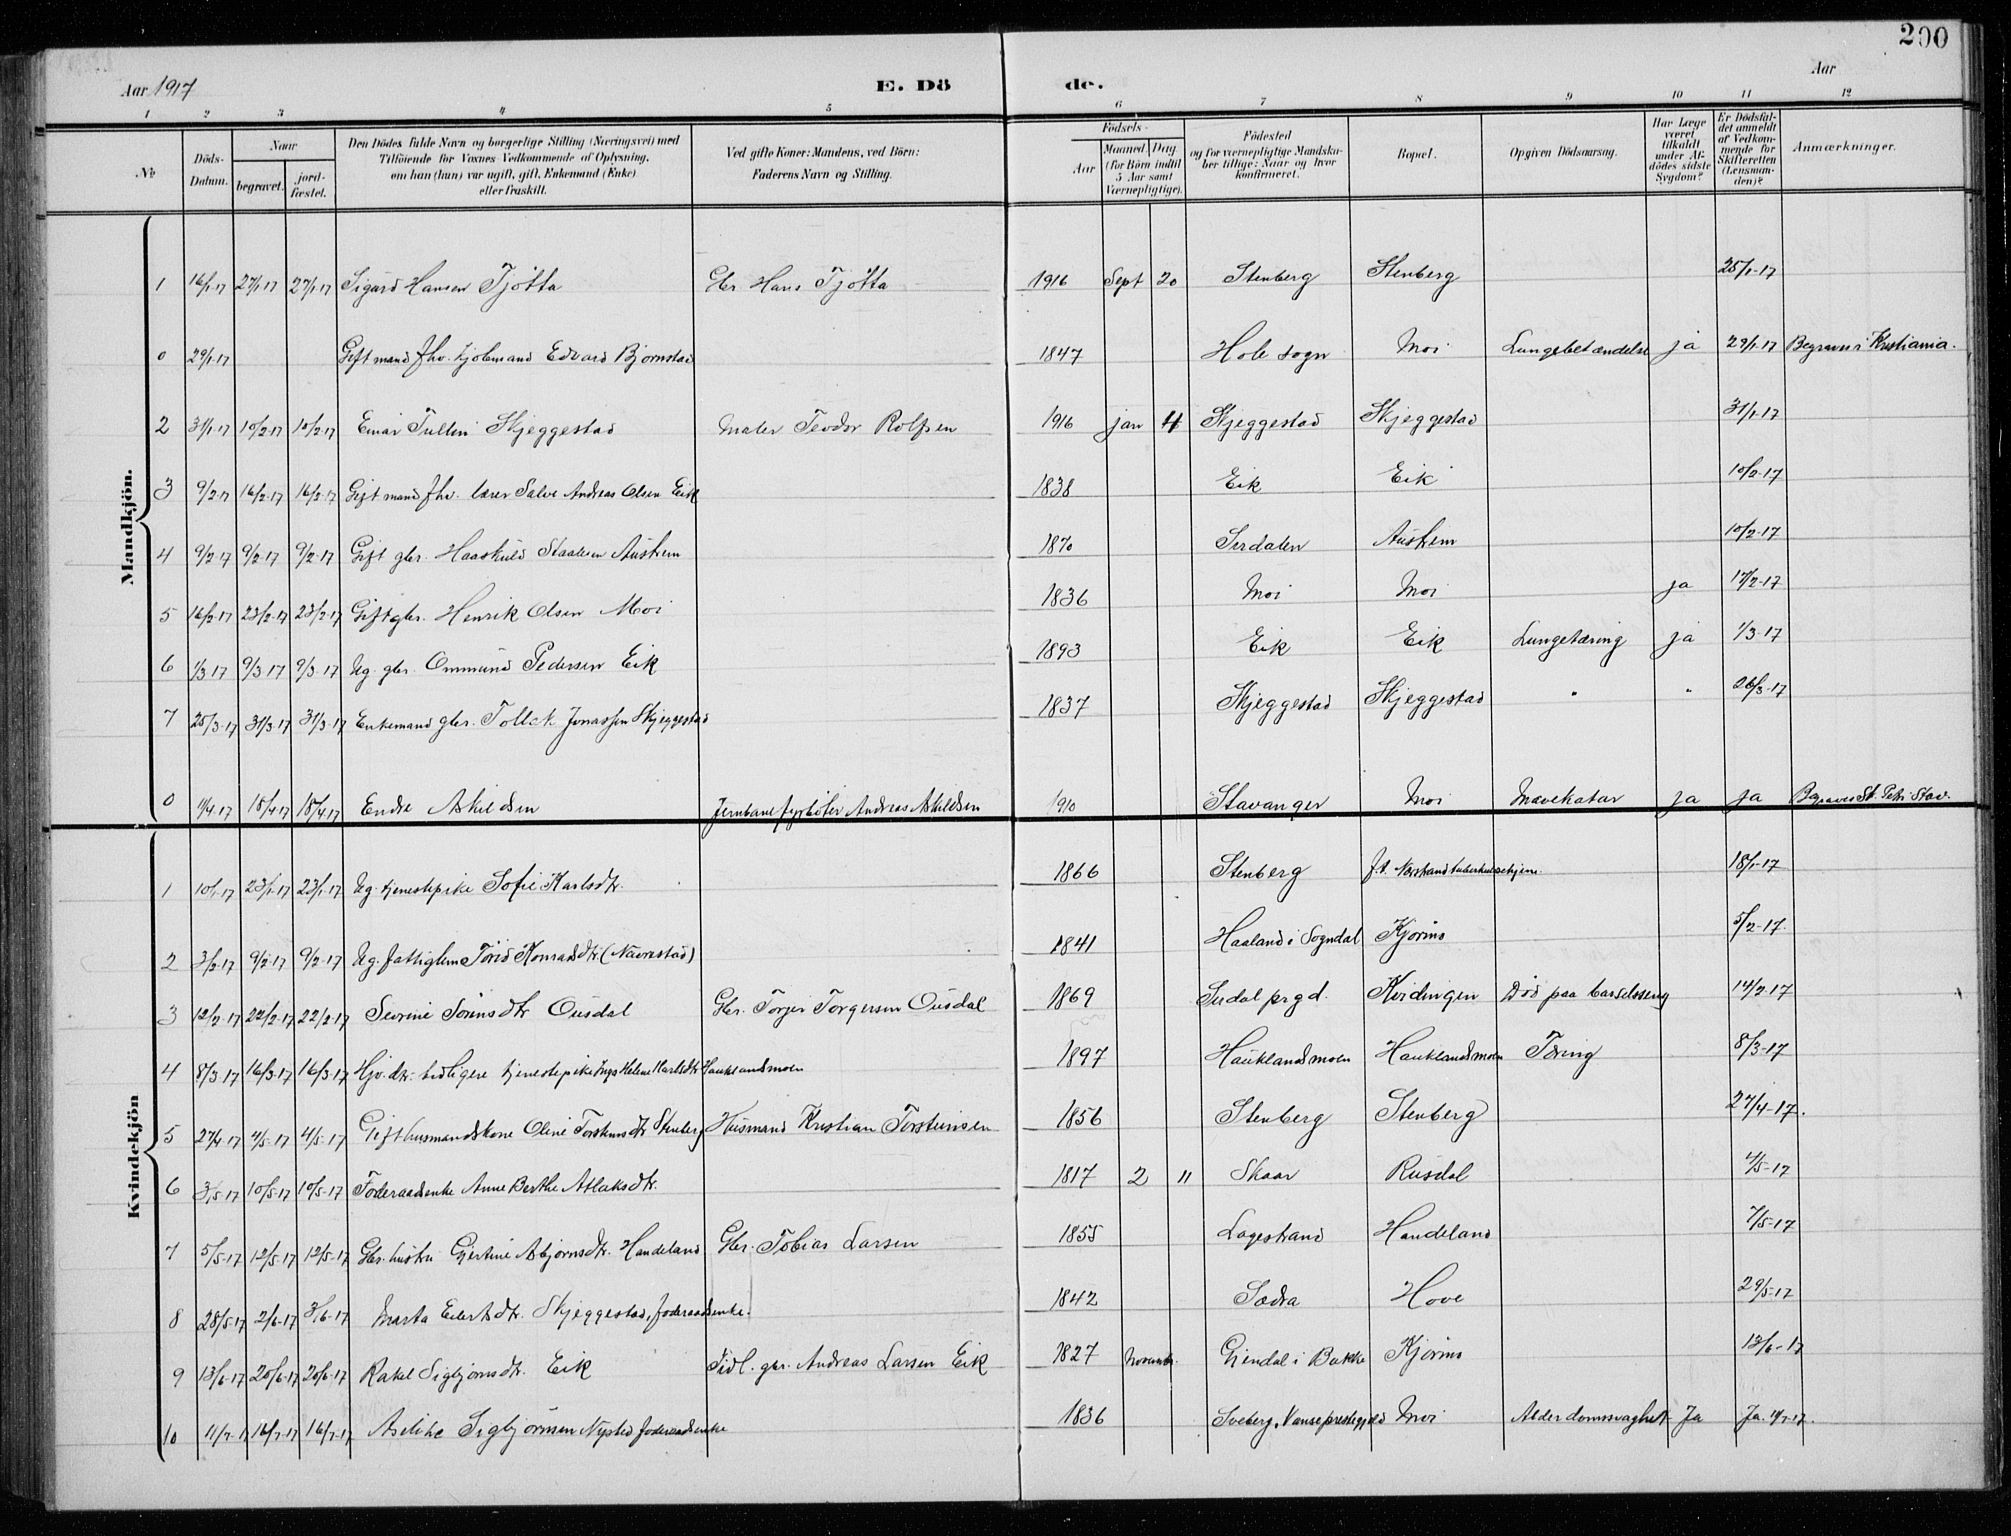 200
Aar 1917
E. Dö de.
Aar
1 2 3 4 5 6 7 8 9 10 11 12
No
Döds-Datum.
Naar
begravet.
jordfæstet.
Den Dödes fulde Navn og borgerlige Stilling (Næringsvei) med Tilföiende for Voxnes Vedkommende af Oplysning, om han (hun) var ugift, gift, Enkemand (Enke) eller fraskilt.
Ved gifte Koner: Mandens, ved Börn: Faderens Navn og Stilling.
Födsels-
Aar
Maaned. Dag.
(for Börn indtil 5 Aar samt Værnepligtige).
Födested og for værnepligtige Mandskaber tillige: Naar og hvor konfirmeret.
Bopæl.
Opgiven Dödsaarsag.
Har Læge været tilkaldt under Afdödes sidste Sygdom?
Er Dödsfaldet anmeldt af Vedkommende for Skifteretten (Lensmanden)?
Anmærkninger.
Mandkjön.
1 16/1-17 27/1-17 27/1-17 Sigurd Hansen Tjøtta Gbr. Hans Tjøtta 1916 Sept 20 Stenberg Stenberg 25/1-17
0 29/1-17 Gift mand fhv. kjøbmand Edvard Bjørnstad 1847 Hole sogn Moi Lungebetændelse ja 29/1-17 Begraves i Kristiania.
2 31/1-17 10/2-17 10/2-17 Einar Tullin Skjeggestad Maler Teodor Rolfsen 1916 jan 4 Skjeggestad Skjeggestad 31/1-17
3 9/2-17 16/2-17 16/2-17 Gift mand fhv. lærer Salve Andreas Olsen Eik 1838 Eik Eik 10/2-17
4 9/2-17 9/2-17 9/2-17 Gift gbr. Haaskuld Staalesen Austrem 1870 Sirdalen Austrem 10/2-17
5 16/2-17 23/2-17 23/2-17 Gift gbr. Henrik Olsen Moi 1836 Moi Moi ja 17/2-17
6 1/3-17 9/3-17 9/3-17 Ug. gbr. Ommund Pedersen Eik 1893 Eik Eik Lungetæring ja 1/3-17
7 25/3-17 31/3-17 31/3-17 Enkemand gbr. Tollak Jonassen Skjeggestad 1837 Skjeggestad Skjeggestad " " 26/3-17
0 11/4-17 18/4-17 18/4-17 Endre Askildsen Jernbanefyrbøter Andreas Askildsen 1910 Stavanger Moi Mavekatar ja ja Begraves St. Petri Stav.
Kvindekjön
1 10/1-17 23/1-17 23/1-17 Ug. tjenestepike Sofie Karlsdtr. 1866 Stenberg f.t. Nærstrand tuberkulosehjem. 18/1-17
2 3/2-17 9/2-17 9/2-17 Ug. fattiglem Torid Konradsdtr. (Navrestad) 1841 Haaland i Sogndal Kjørmo 5/2-17.
3 12/2-17 22/2-17 22/2-17 Severine Sørinsdtr Ousdal Gbr. Torger Torgersen Ousdal 1869 Sirdal prgd. Kvidingen Død paa barselseng 14/2-17
4 8/3-17 16/3-17 16/3-17 Hjv. dtr. tidligere tjenestepike Inga Helene Karlsdtr Hauklandsmoen 1897 Hauklandsmoen Hauklandsmoen Tæring 8/3-17
5 27/4-17 4/5-17 4/5-17 Gift husmandskone Oline Torkelsdtr Stenberg Husmand Kristian Torsteinsen 1856 Stenberg Stenberg 27/4-17.
6 3/5-17 10/5-17 10/5-17 Føderaadsenke Anne Berthe Atlaksdtr. 1817 2 11 Skaar Rusdal 4/5-17
7 5/5-17 12/5-17 12/5-17 Gbr. hustru Gjertine Asbjørnsdtr. Handeland Gbr. Tobias Larsen 1855 Lagestrand Handeland 7/5-17
8 28/5-17 2/6-17 3/6-17 Marta Eilertsdtr. Skjeggestad, føderaadsenke. 1842 Sædra Hove 29/5-17
9 13/6-17 20/6-17 20/6-17 Rakel Sigbjørnsdtr. Eik Tidl. gbr. Andreas Larsen Eik 1827 Novemb. Gjendal i Bakke Kjørmo 13/6-17
10 11/7-17 16/7-17 16/7-17 Aselike Sigbjørnsen Nysted føderaadsenke 1836 Sveberg, Vanse prestegjeld Moi Alderdomssvaghet Ja Ja 11/7-17.